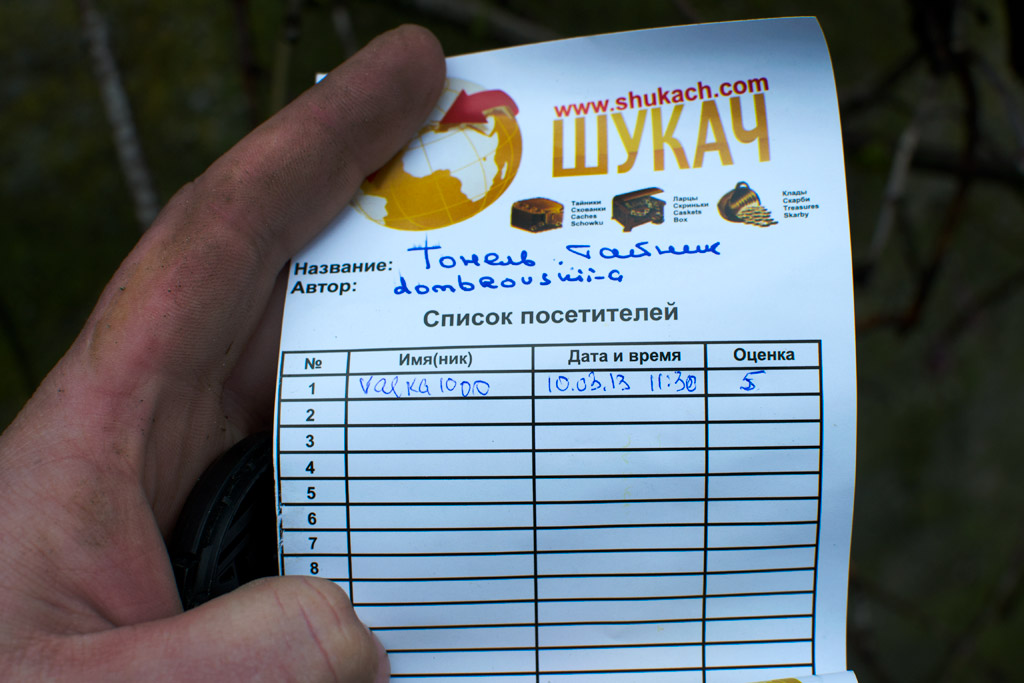 www.shukach.com
ШУКАЧ
Тайники
Схованки
Caches
Schowku
Ларцы
Скриньки
Caskets
Box
Клады
Скарби
Treasures
Skarby
Название: Тонель. Тайник
Автор: dombrovskii-a
Список посетителей
№ Имя(ник) Дата и время Оценка
1 valka1000 10.03.13 11:30 5
2
3
4
5
6
7
8